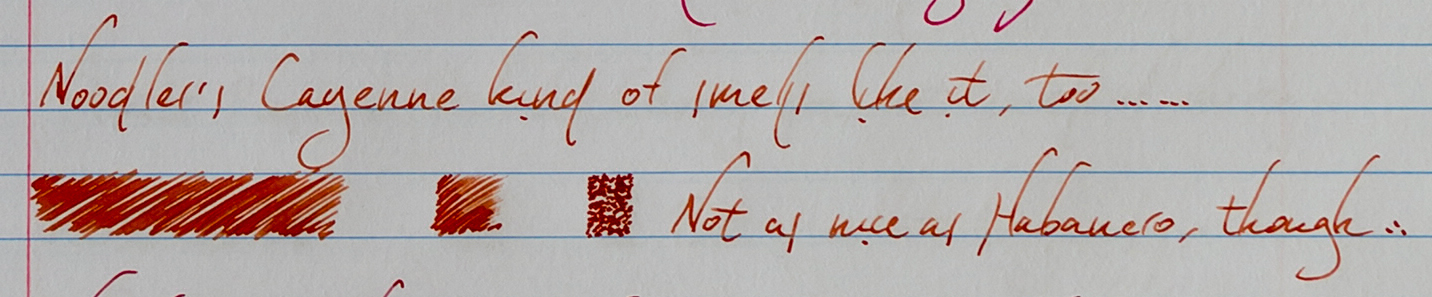 Noodler's Cayenne kind of smells like it, too......
Not as nice as Habanero, though...